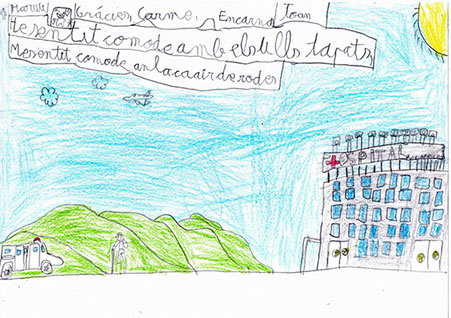 Gràcies Carme, Encarna Joan
Me sentit comode amb els ulls tapats
Me sentit comode an la cadir de rodes
HOSPITAL